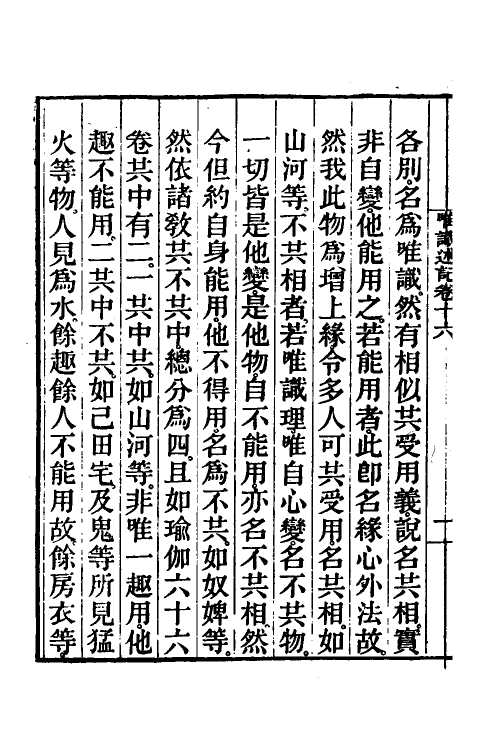 唯識述記卷十六
各別。名爲唯識。然有相似共受用義。說名共相。實
非自變。他能用之。若能用者。此卽名緣心外法故。
然我此物爲增上緣。令多人可共受用。名共相。如
山河等。不共相者。若唯識理。唯自心變。名不共物。
一切皆是他變。是他物。自不能用。亦名不共相。然
今但約自身能用。他不得用。名爲不共。如奴婢等。
然依諸敎。共不共中。總分爲四。且如瑜伽六十六
卷。共中有二。一共中共。如山河等。非唯一趣用。他
趣不能用。二共中不共。如己田宅。及鬼等所見猛
火等物。人見爲水。餘趣餘人不能用故。餘房衣等。